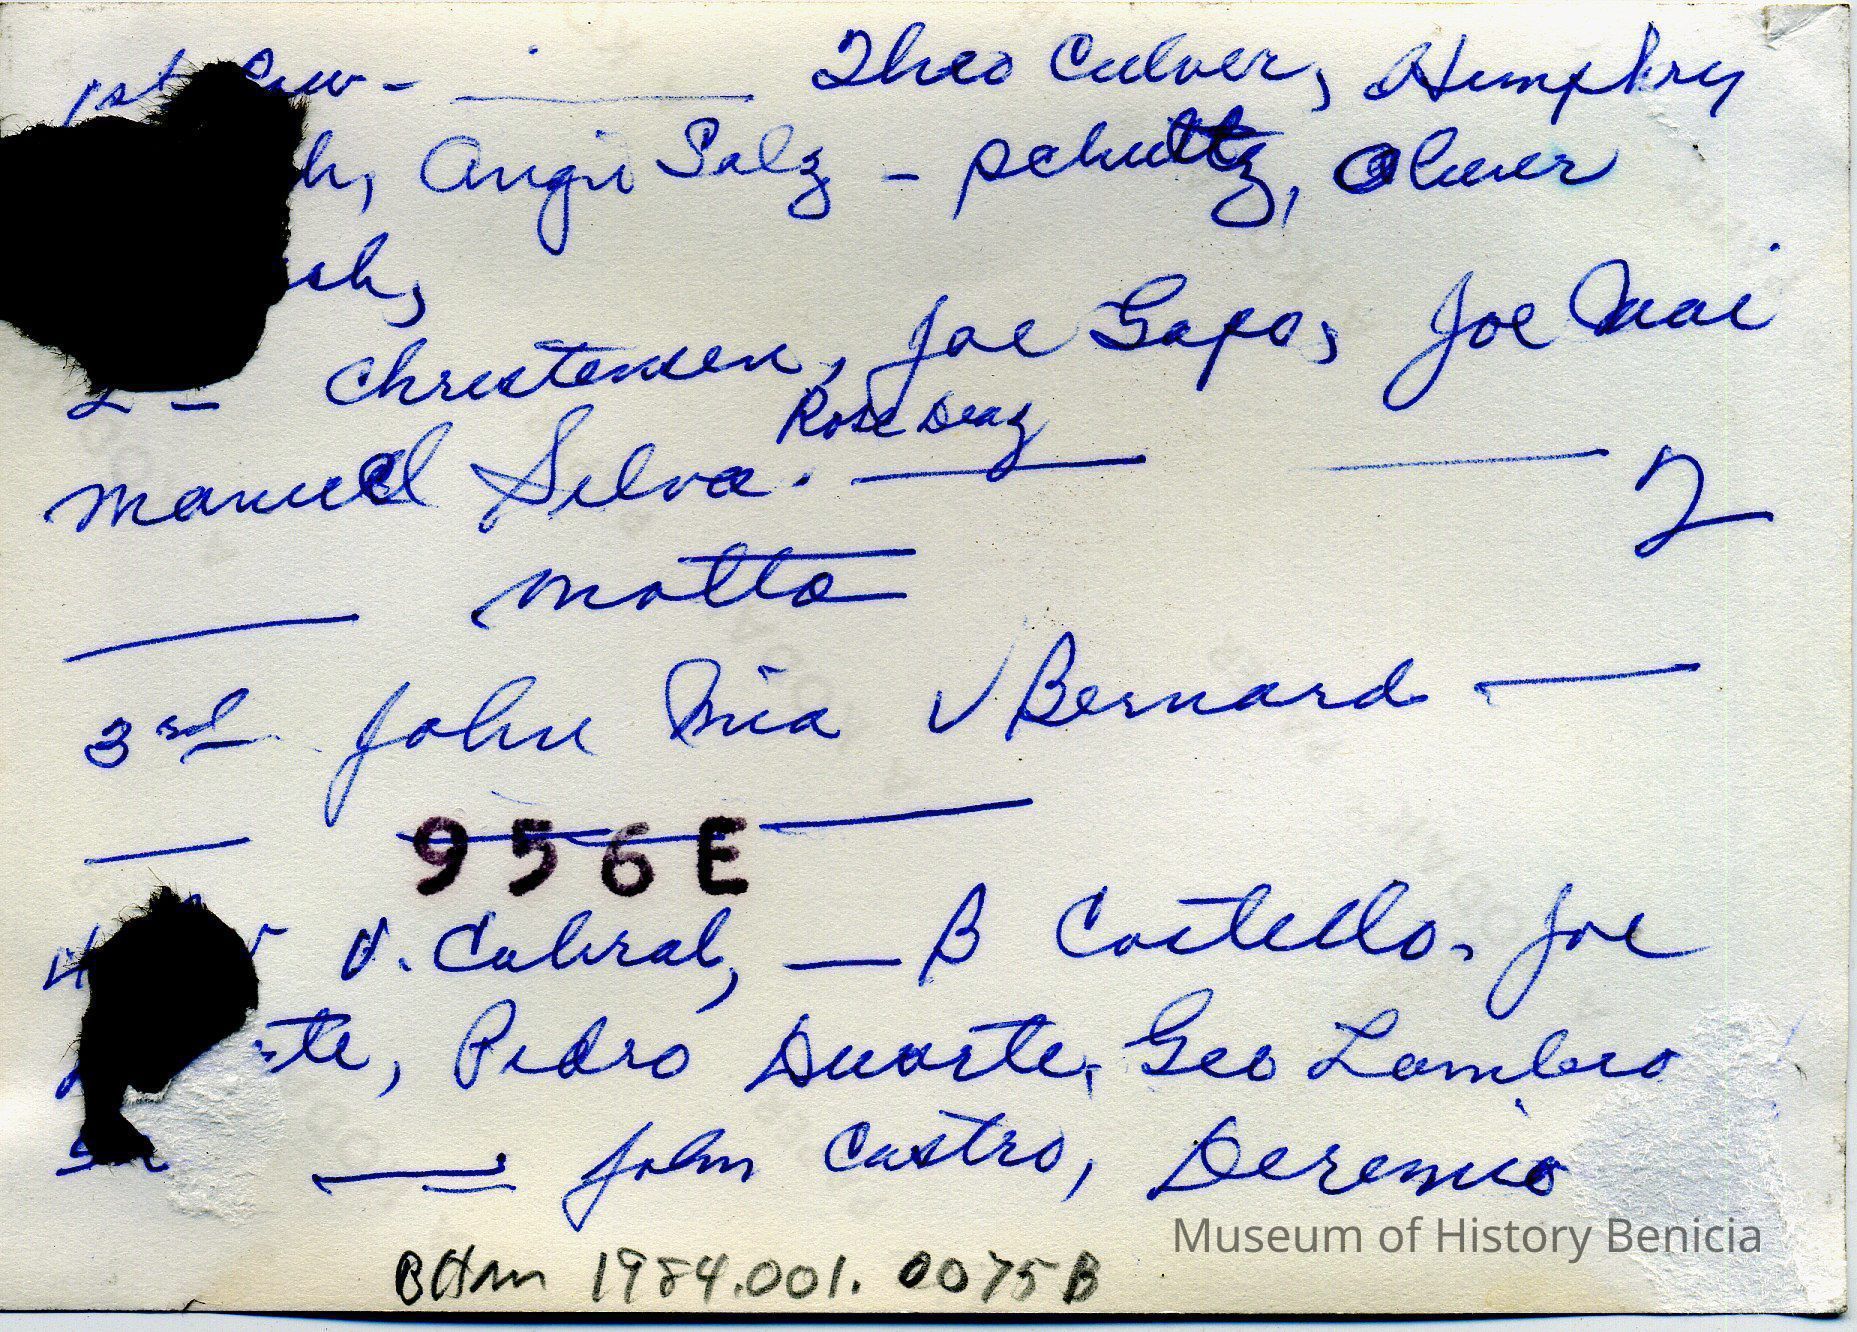 1st Row - ______ Theo Culver, Humphry
h, Angie Salz - Schultz, Oliver
sh,
2 - Christensen, Joe Gapo, Joe Mai
Rose Deaz
Manuel Silva. ______ ______ 2
______ Motta
3rd John Mia V Bernard ______
956E
V. Cabral, ___ B Costello, Joe
te, Pedro Duarte, Geo Lambro
______ John Castro, Deremio
Museum of History Benicia
BHM 1984.001.0075B